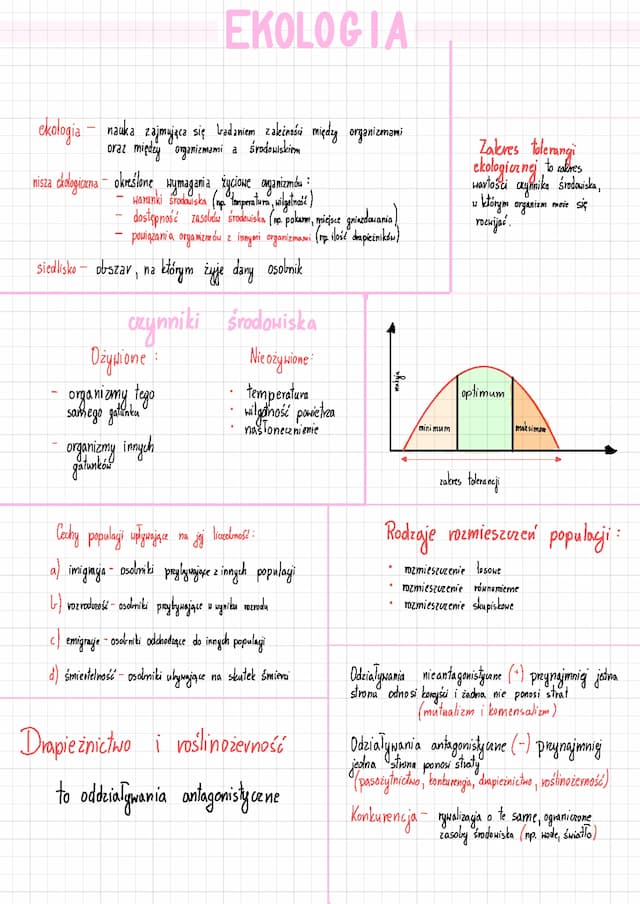 EKOLOGIA
ekologia – nauka zajmująca się badaniem zależności między organizmami
oraz między organizmami a środowiskiem
nisza ekologiczna – określone wymagania życiowe organizmów :
– warunki środowiska (np. temperatura, wilgotność)
– dostępność zasobów środowiska (np. pokarm, miejsce gniazdowania)
– powiązania organizmów z innymi organizmami (np. ilość drapieżników)
siedlisko – obszar, na którym żyje dany osobnik
Zakres tolerancji
ekologicznej to zakres
wartości czynnika środowiska,
w którym organizm może się
rozwijać.
czynniki środowiska
Ożywione :
– organizmy tego
samego gatunku
– organizmy innych
gatunków
Nieożywione:
• temperatura
• wilgotność powietrza
• nasłonecznienie
optimum
minimum
maksimum
zakres tolerancji
Cechy populacji wpływające na jej liczebność :
a) imigracja – osobniki przybywające z innych populacji
b) rozrodczość – osobniki przybywające w wyniku rozrodu
c) emigracja – osobniki odchodzące do innych populacji
d) śmiertelność – osobniki ubywające na skutek śmierci
Rodzaje rozmieszczeń populacji :
• rozmieszczenie losowe
• rozmieszczenie równomierne
• rozmieszczenie skupiskowe
Drapieżnictwo i roślinożerność
to oddziaływania antagonistyczne
Odziaływania nieantagonistyczne (+) przynajmniej jedna
strona odnosi korzyści i żadna nie ponosi strat
(mutualizm i komensalizm)
Odziaływania antagonistyczne (–) przynajmniej
jedna strona ponosi straty
(pasożytnictwo, konkurencja, drapieżnictwo, roślinożerność)
Konkurencja – rywalizacja o te same, ograniczone
zasoby środowiska (np. wodę, światło)